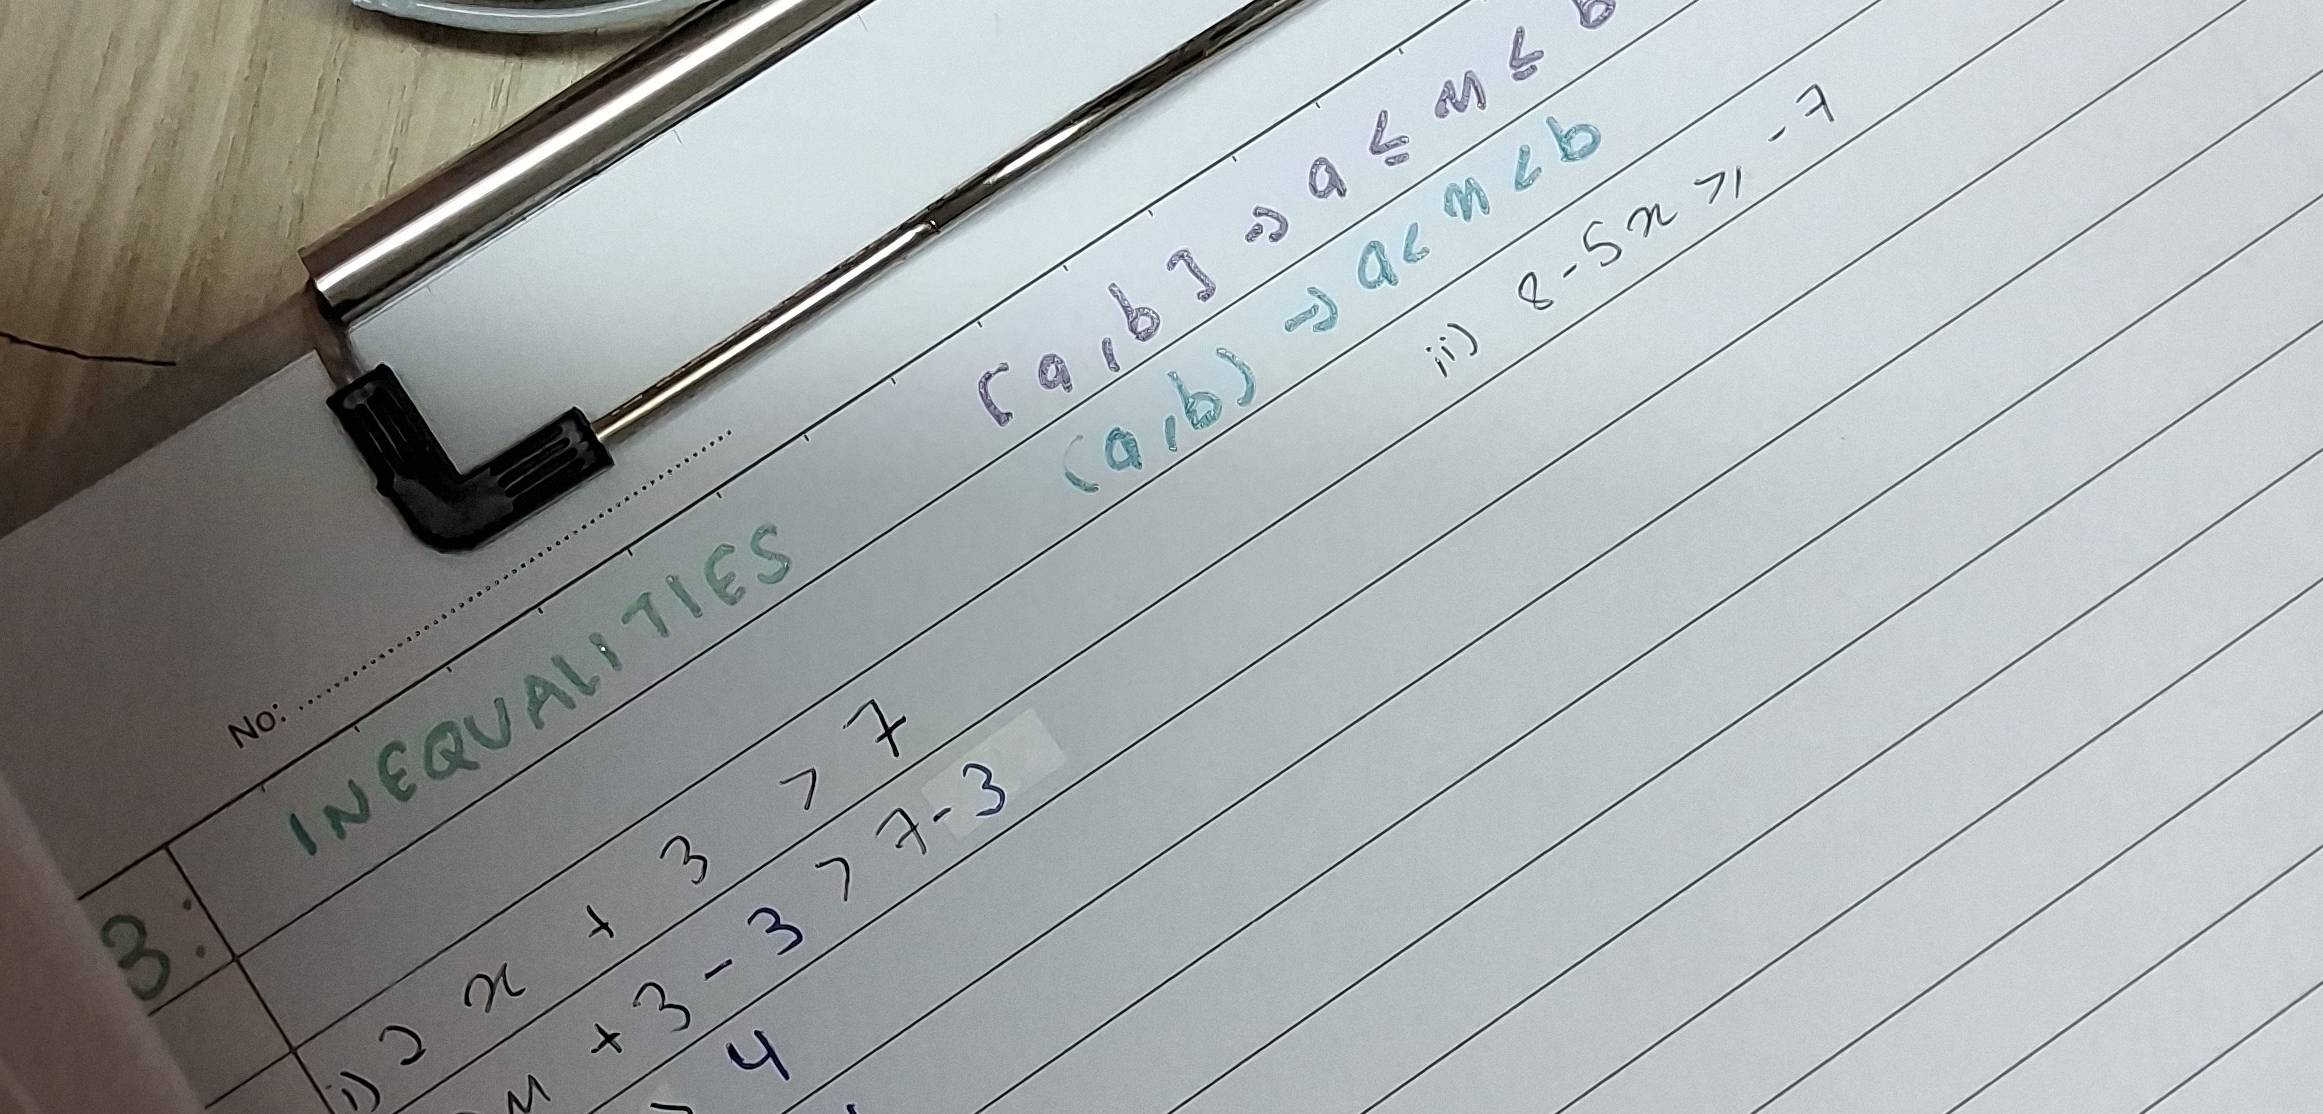 No:
3: INEQUALITIES
[a,b] → a ≤ x ≤ b
(a,b) → a < x < b
i) 2x + 3 > 7
ii) 8 - 5x ≥ -7
x + 3 - 3 > 7 - 3
> 4